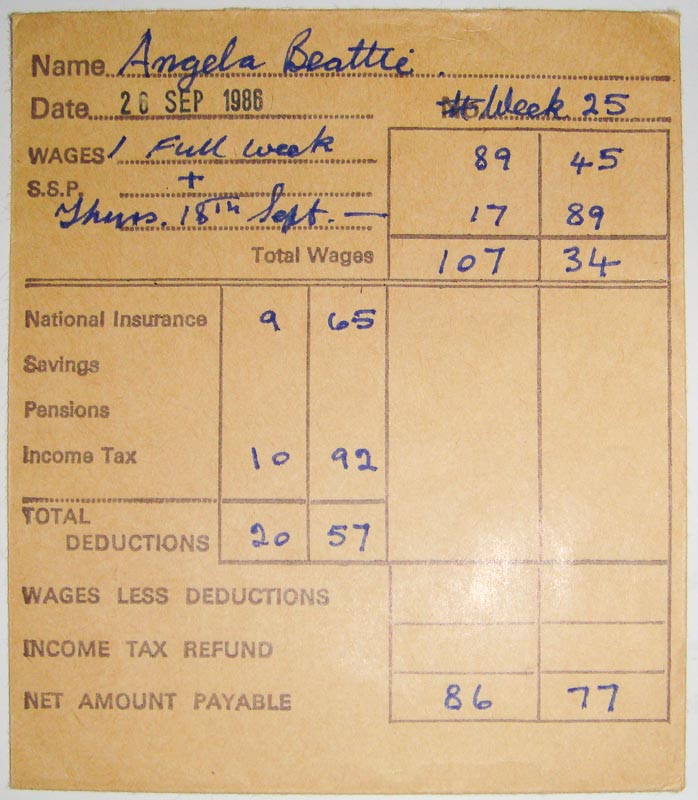 Name Angela Beattie.
Date 26 SEP 1986 Week 25
WAGES 1 Full week 89 45
S.S.P. +
Thurs. 18th Sept. — 17 89
Total Wages 107 34
National Insurance 9 65
Savings
Pensions
Income Tax 10 92
TOTAL
DEDUCTIONS 20 57
WAGES LESS DEDUCTIONS
INCOME TAX REFUND
NET AMOUNT PAYABLE 86 77